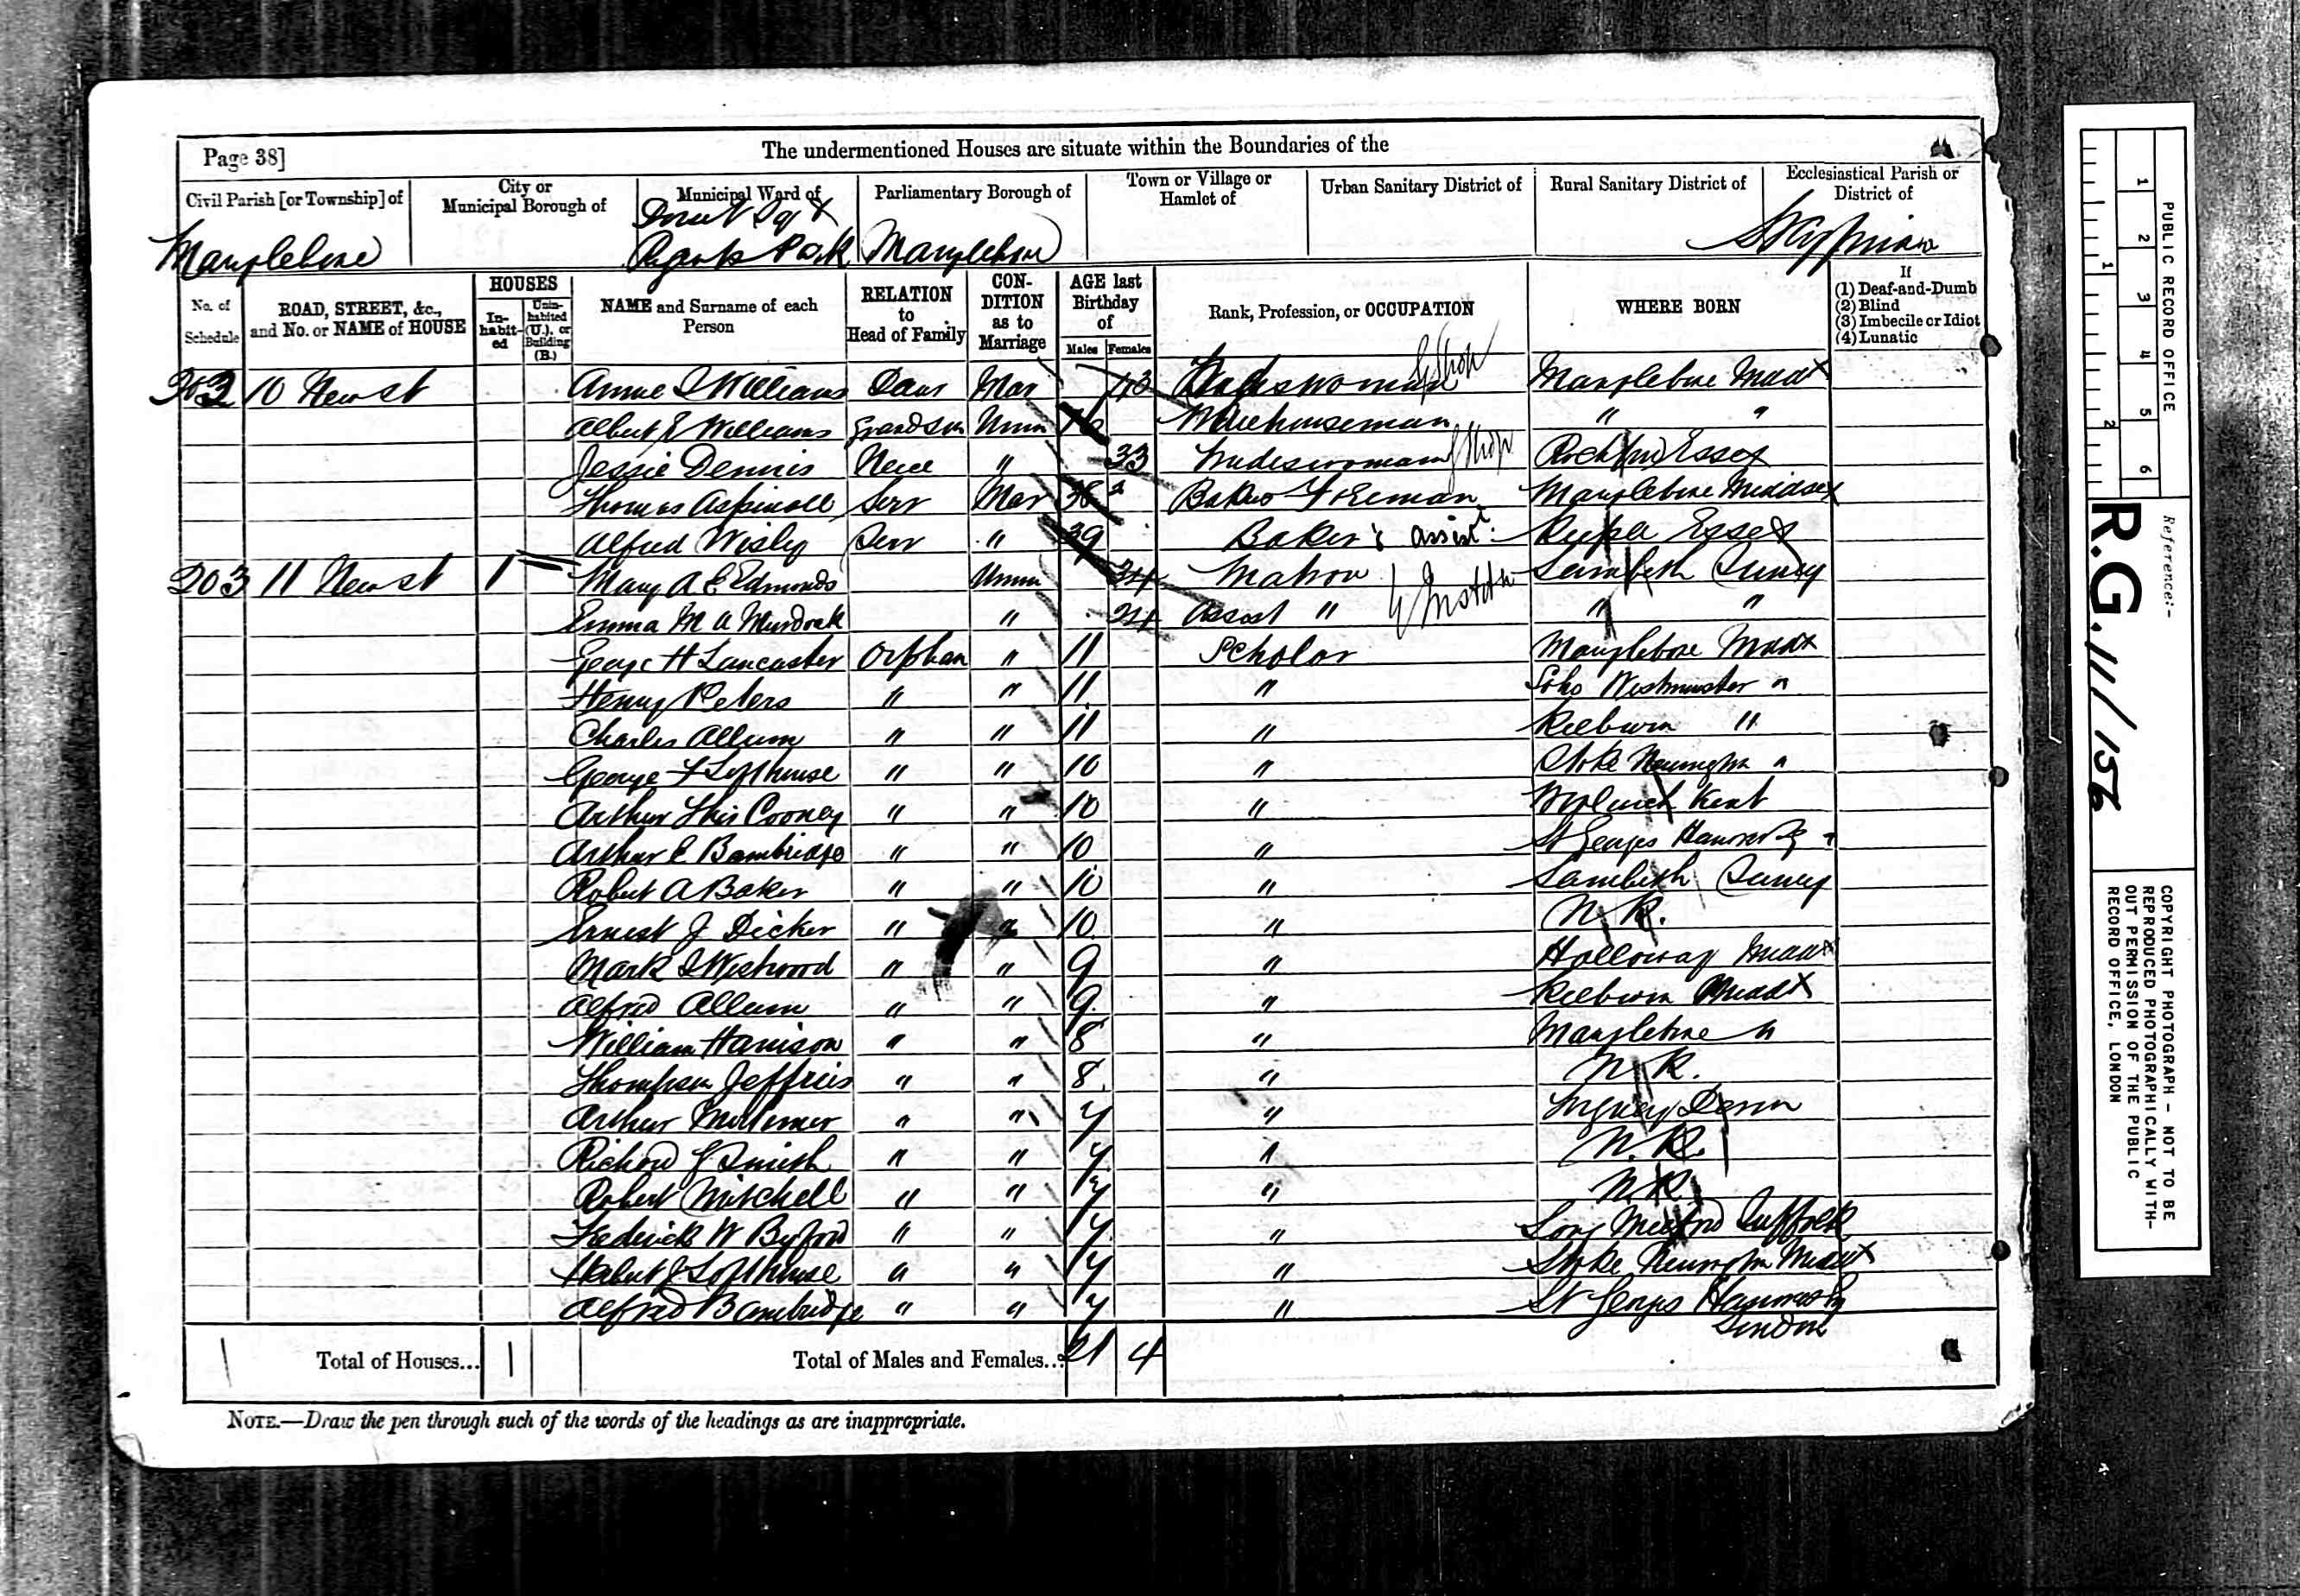 Page 38]
The undermentioned Houses are situate within the Boundaries of the
Civil Parish [or Township] of
City or Municipal Borough of
Municipal Ward of
Parliamentary Borough of
Town or Village or Hamlet of
Urban Sanitary District of
Rural Sanitary District of
Ecclesiastical Parish or District of
Marylebone
Dorset Sq &
Regents Park
Marylebone
St Cyprian
No. of Schedule
ROAD, STREET, &c., and No. or NAME of HOUSE
HOUSES
In-habit-ed
Unin-habited (U.), or Building (B.)
NAME and Surname of each Person
RELATION to Head of Family
CON-DITION as to Marriage
AGE last Birthday of
Males
Females
Rank, Profession, or OCCUPATION
WHERE BORN
If
(1) Deaf-and-Dumb
(2) Blind
(3) Imbecile or Idiot
(4) Lunatic
202 10 New st Annie Williams Daur Mar 43 Tradeswoman Shop Marylebone Middx
Albert E Williams Grandson Unm 16 Warehouseman " "
Jessie Dennis Neice " 33 Tradeswoman Shop Rochford Essex
Thomas Aspinall Serv Mar 38 Bakers Foreman Marylebone Middsex
Alfred Wisby Serv " 39 Baker's assist. Essex
203 11 New st 1 Mary A E Edmonds Unm 34 Matron Lambeth Surrey
Emma M A Murdock " 24 Assist " " "
George H Lancaster Orphan " 11 Scholar Marylebone Middx
Henry Peters " " 11 " Soho Westminster "
Charles Allum " " 11 " Kilburn "
George F Lofthouse " " 10 " Stoke Newington "
Arthur Cooney " " 10 " Woolwich Kent
Arthur E Bambridge " " 10 " St Georges Hanover Sq "
Robert A Baker " " 10 " Lambeth Surrey
Ernest J Dicker " " 10 " N. K.
Mark Westwood " " 9 " Holloway Middx
Alfred Allum " " 9 " Kilburn Middx
William Harrison " " 8 " Marylebone "
Thompson Jeffries " " 8 " N. K.
Arthur Mortimer " " 7 " Devon
Richard J Smith " " 7 " N. K.
Robert Mitchell " " 7 " N. K.
Frederick W Byford " " 7 " Long Melford Suffolk
Herbert J Lofthouse " " 7 " Stoke Newington Middx
Alfred Bambridge " " 7 " St Georges Hanover Sq
London
1 Total of Houses... 1 Total of Males and Females... 21 4
NOTE.—Draw the pen through such of the words of the headings as are inappropriate.
PUBLIC RECORD OFFICE
1 2 3 4 5 6
1 2
Reference:-
R.G. 11/156
COPYRIGHT PHOTOGRAPH – NOT TO BE
REPRODUCED PHOTOGRAPHICALLY WITH-
OUT PERMISSION OF THE PUBLIC
RECORD OFFICE, LONDON